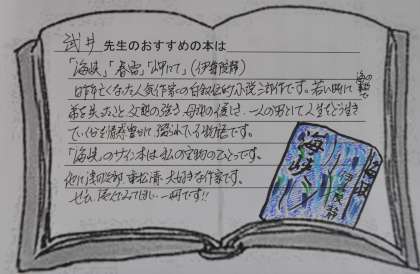 武井 先生のおすすめの本は
「海峡」「春雷」「岬にて」(伊集院静)
昨年亡くなった人気作家の自伝的小説三部作です。若い時に
海の事故で
弟を失ったこと 父親の強さ 母親の優しさ、一人の男として人生をどう生き
ていくか 情感豊かに 描かれている物語です。
「海峡」のサイン本は私の宝物のひとつです。
他に浅田次郎 重松清 大好きな作家です。
ぜひ 読んでみてほしい一冊です!!
海峡
海峡
伊集院静